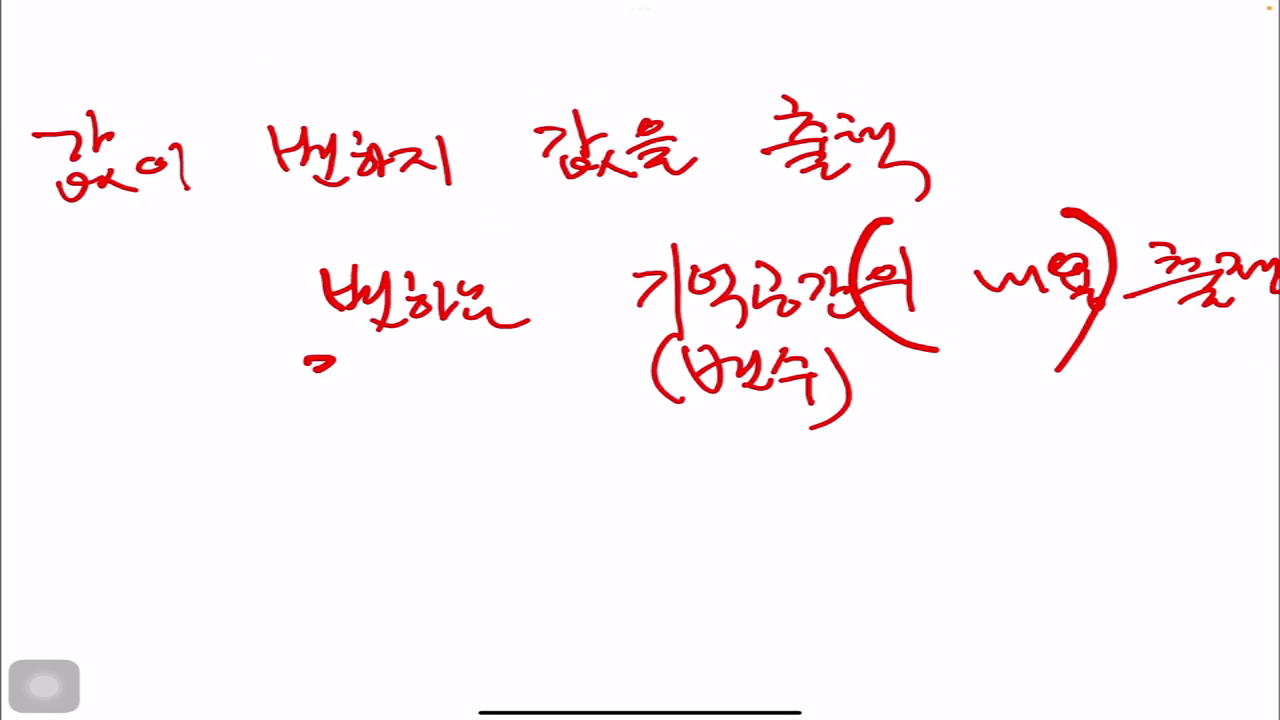 값이 변하지 값을 출력
변하는 기억공간의 내용 출력
(변수)